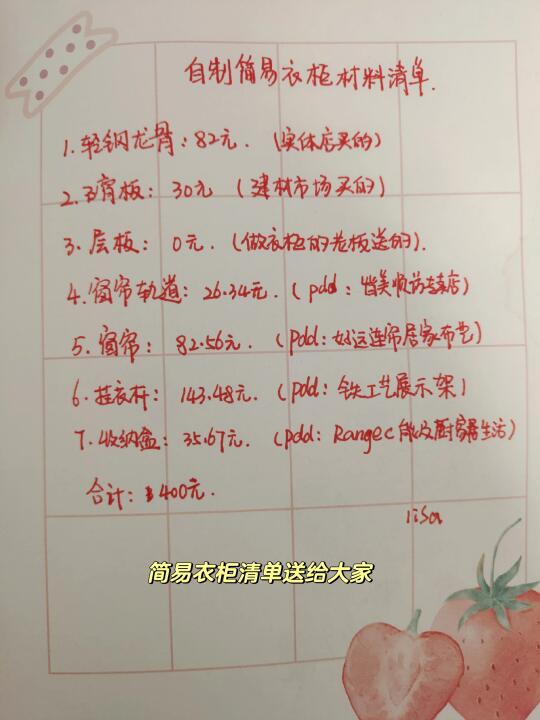 自制简易衣柜材料清单.
1.轻钢龙骨:82元.(实体店买的)
2.石膏板:30元(建材市场买的)
3.层板:0元.(做衣柜的老板送的).
4.窗帘轨道:26.34元.(pdd:美顺访专卖店)
5.窗帘:82.56元.(pdd:好运连帘居家布艺)
6.挂衣杆:143.48元.(pdd:铁工艺展示架)
7.收纳盒:35.67元.(pdd:Rangec 厨家居生活)
合计:400元.
lisa
简易衣柜清单送给大家